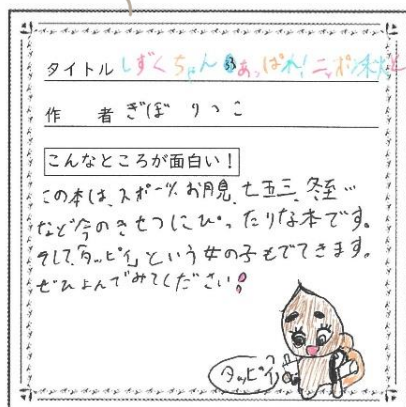 タイトル しずくちゃん㉝あっぱれ!ニッポン秋と
作 者 ぎぼ りつこ
こんなところが面白い!
この本は、スポーツ、お月見、七五三、冬至…
など今のきせつにぴったりな本です。
そして、「タッピィ」という女の子もでてきます。
ぜひよんでみてください!
タッピィ